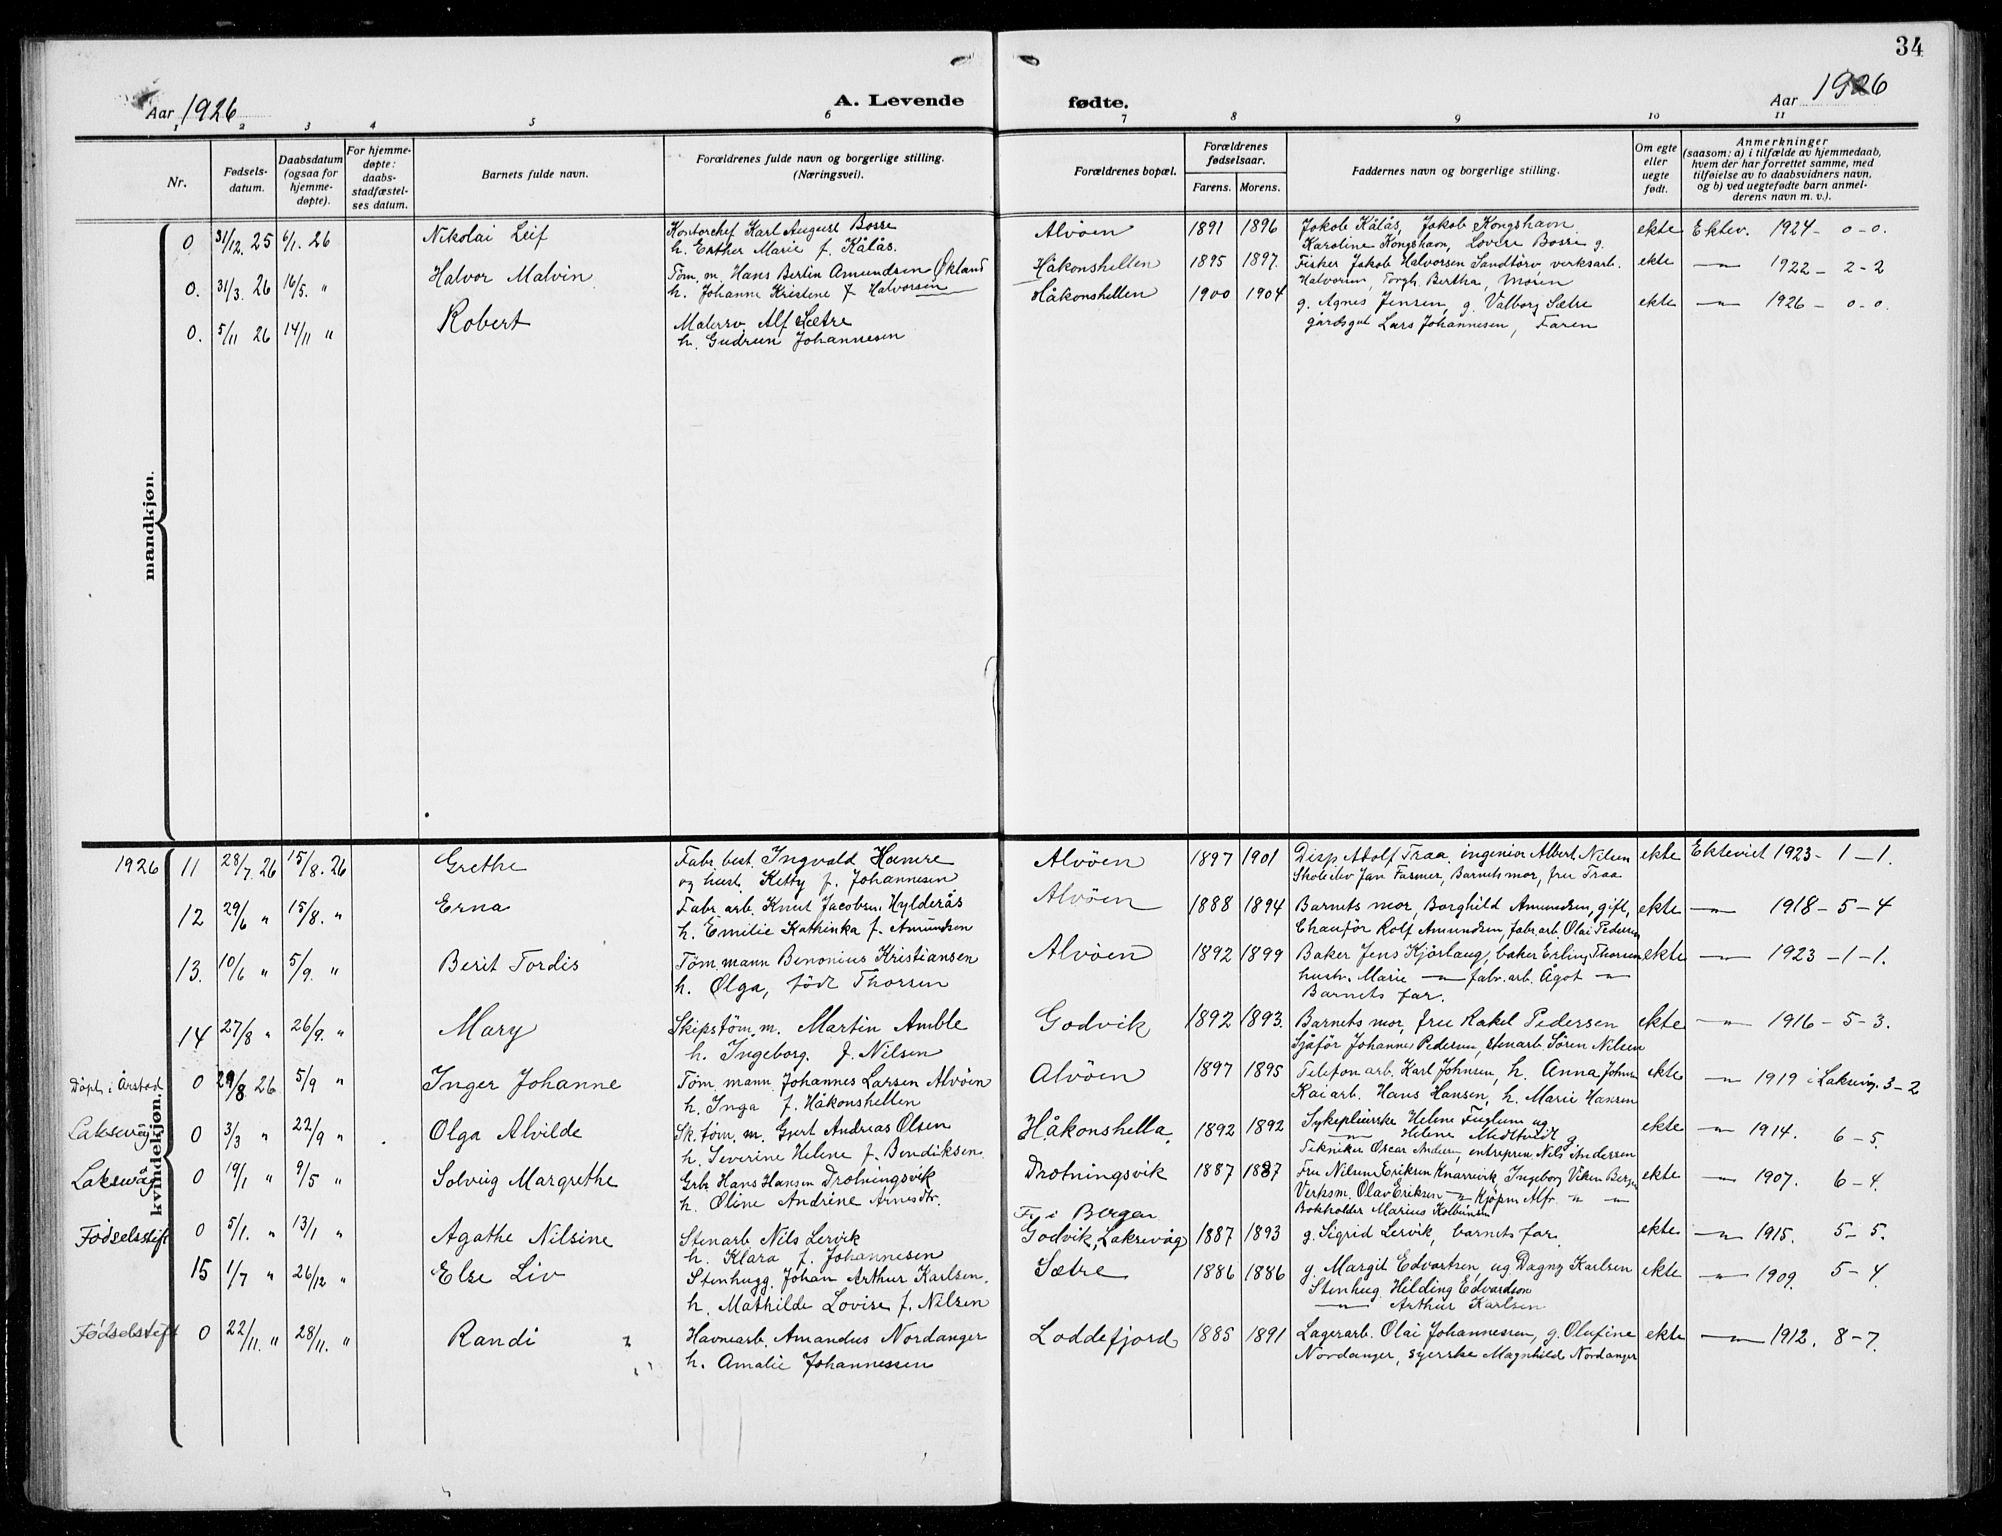 34
Aar 1926
A. Levende fødte.
Aar 1926
1 2 3 4 5 6 7 8 9 10 11
Nr.
Fødsels-
datum.
Daabsdatum
(ogsaa for
hjemme-
døpte).
For hjemme-
døpte:
daabs-
stadfæstel-
ses datum.
Barnets fulde navn.
Forældrenes fulde navn og borgerlige stilling.
(Næringsvei).
Forældrenes bopæl.
Forældrenes
fødselsaar.
Farens. Morens.
Faddernes navn og borgerlige stilling.
Om egte
eller
uegte
født.
Anmerkninger
(saasom: a) i tilfælde av hjemmedaab,
hvem der har forrettet samme, med
tilføielse av to daabsvidners navn,
og b) ved uegtefødte barn anmel-
derens navn m. v.).
mandkjøn.
0 31/12. 25 6/1. 26 Nikolai Leif Kontorchef Karl August Bosse Alvöen 1891 1896 Jakob Kålås, Jakob Kongshavn ekte Ektev. 1924 - 0 - 0.
h. Esther Marie f. Kålås. Karoline Kongshavn, Lovise Bosse g.
0. 31/3. 26 16/5. " Halvor Malvin Töm. m. Hans Berlin Amundsen Økland Håkonshellen 1895 1897. Fisker Jakob Halvorsen Sandtörv, verksarb. ekte — " — 1922 - 2 - 2
h. Johanne Kristene f. Halvorsen Halvorsen, Torgh. Bertha, Moren
0. 5/11 26 14/11 " Robert Malersv. Alf Sætre Håkonshellen 1900 1904 g. Agnes Jensen, g. Valborg Sætre ekte — " — 1926 - 0 - 0.
h. Gudrun Johannesen gårdsgut Lars Johannesen, Faren
kvindekjøn.
1926 11 28/7. 26 15/8. 26 Grethe Fabr. best. Ingvald Hamre Alvöen 1897 1901 Disp Adolf Traa, ingeniör Albert Nilsen ekte Ekteviet 1923 - 1 - 1.
og hust. Ketty f. Johannesen Skoleelev Jan Farmer, Barnets mor, fru Traa
12 29/6 " 15/8. " Erna Fabr. arb. Knut Jacobsen Hylderås Alvöen 1888 1894 Barnets mor, Borghild Amundsen, gift, ekte — " — 1918 - 5 - 4
h. Emilie Kathinka f. Amundsen Chauför Rolf Amundsen, fabr. arb. Olai Pedersen
13. 10/6 " 5/9. " Berit Tordis Töm. mann Benonius Kristiansen Alvöen 1892 1899 Baker Jens Kjörlaug, baker Erling Thorsen ekte — " — 1923 - 1 - 1.
h. Olga, född Thorsen hustr. Marie — " — fabr. arb. Ågot — " —
Barnets far.
14 27/8 " 26/9. " Mary Skipstöm. m. Martin Amble Godvik 1892 1893. Barnets mor, frue Rakel Pedersen ekte — " — 1916 - 5 - 3.
h. Ingeborg. f. Nilsen Sjåför Johannes Pedersen, stenarb. Sören Nilsen
Döpt i Årstad 0 29/8 26 5/9 " Inger Johanne Töm. mann Johannes Larsen Alvöen Alvöen 1897 1895 Telefonarb. Karl Johnsen, h. Anna Johnsen ekte — " — 1919 i Laksevåg. 3 - 2
h. Inga f. Håkonshellen Kaiarb. Hans Hansen, h. Marie Hansen
Laksevåg 0 3/3 " 22/9 " Olga Alvilde Sk. töm. m. Gjert Andreas Olsen Håkonshella 1892 1892 Sykepleierske Helene Fuglum og ekte — " — 1914. 6 - 5.
h. Severine Helene f. Bendiksen — " — Helene Medtveidt g.
Tekniker Oscar Andersen, entrepren. Nils Andersen
Laksevåg 0 19/1 " 9/5 " Solveig Margrethe Grb. Hans Hansen Drotningsvik Drotningsvik 1887 1887 Fru Nilsine Eriksen Knarrevik, Ingeborg Viken Bergen ekte — " — 1907. 6 - 4.
h. Oline Andrine Arnesdtr. Verksm. Olav Eriksen — " — Kjöpm Alfr. — " —
Bokholder Marius Kolbeinsen
Fødselsstift 0 5/1. " 13/1 " Agathe Nilsine Stenarb Nils Lervik F. i Bergen
Godvik, Laksevåg 1887 1893 g. Sigrid Lervik, barnets far. ekte — " — 1915. 5 - 5.
h. Klara f. Johannesen
15 1/7 " 26/12 " Else Liv Stenhugg. Johan Arthur Karlsen. Sætre 1886 1886 g. Margit Edvartsen, ug Dagny Karlsen ekte — " — 1909. 5 - 4.
h. Mathilde Lovise f. Nilsen Stenhug. Hilding Edvardson
— " — Arthur Karlsen
Fødselsstift 0 22/11. " 28/11. " Randi Havnearb. Amandus Nordanger Loddefjord 1885 1891 Lagerarb. Olai Johannessen, g. Olufine ekte — " — 1912. 8 - 7.
h. Amalie Johannessen Nordanger, syerske Magnhild Nordanger